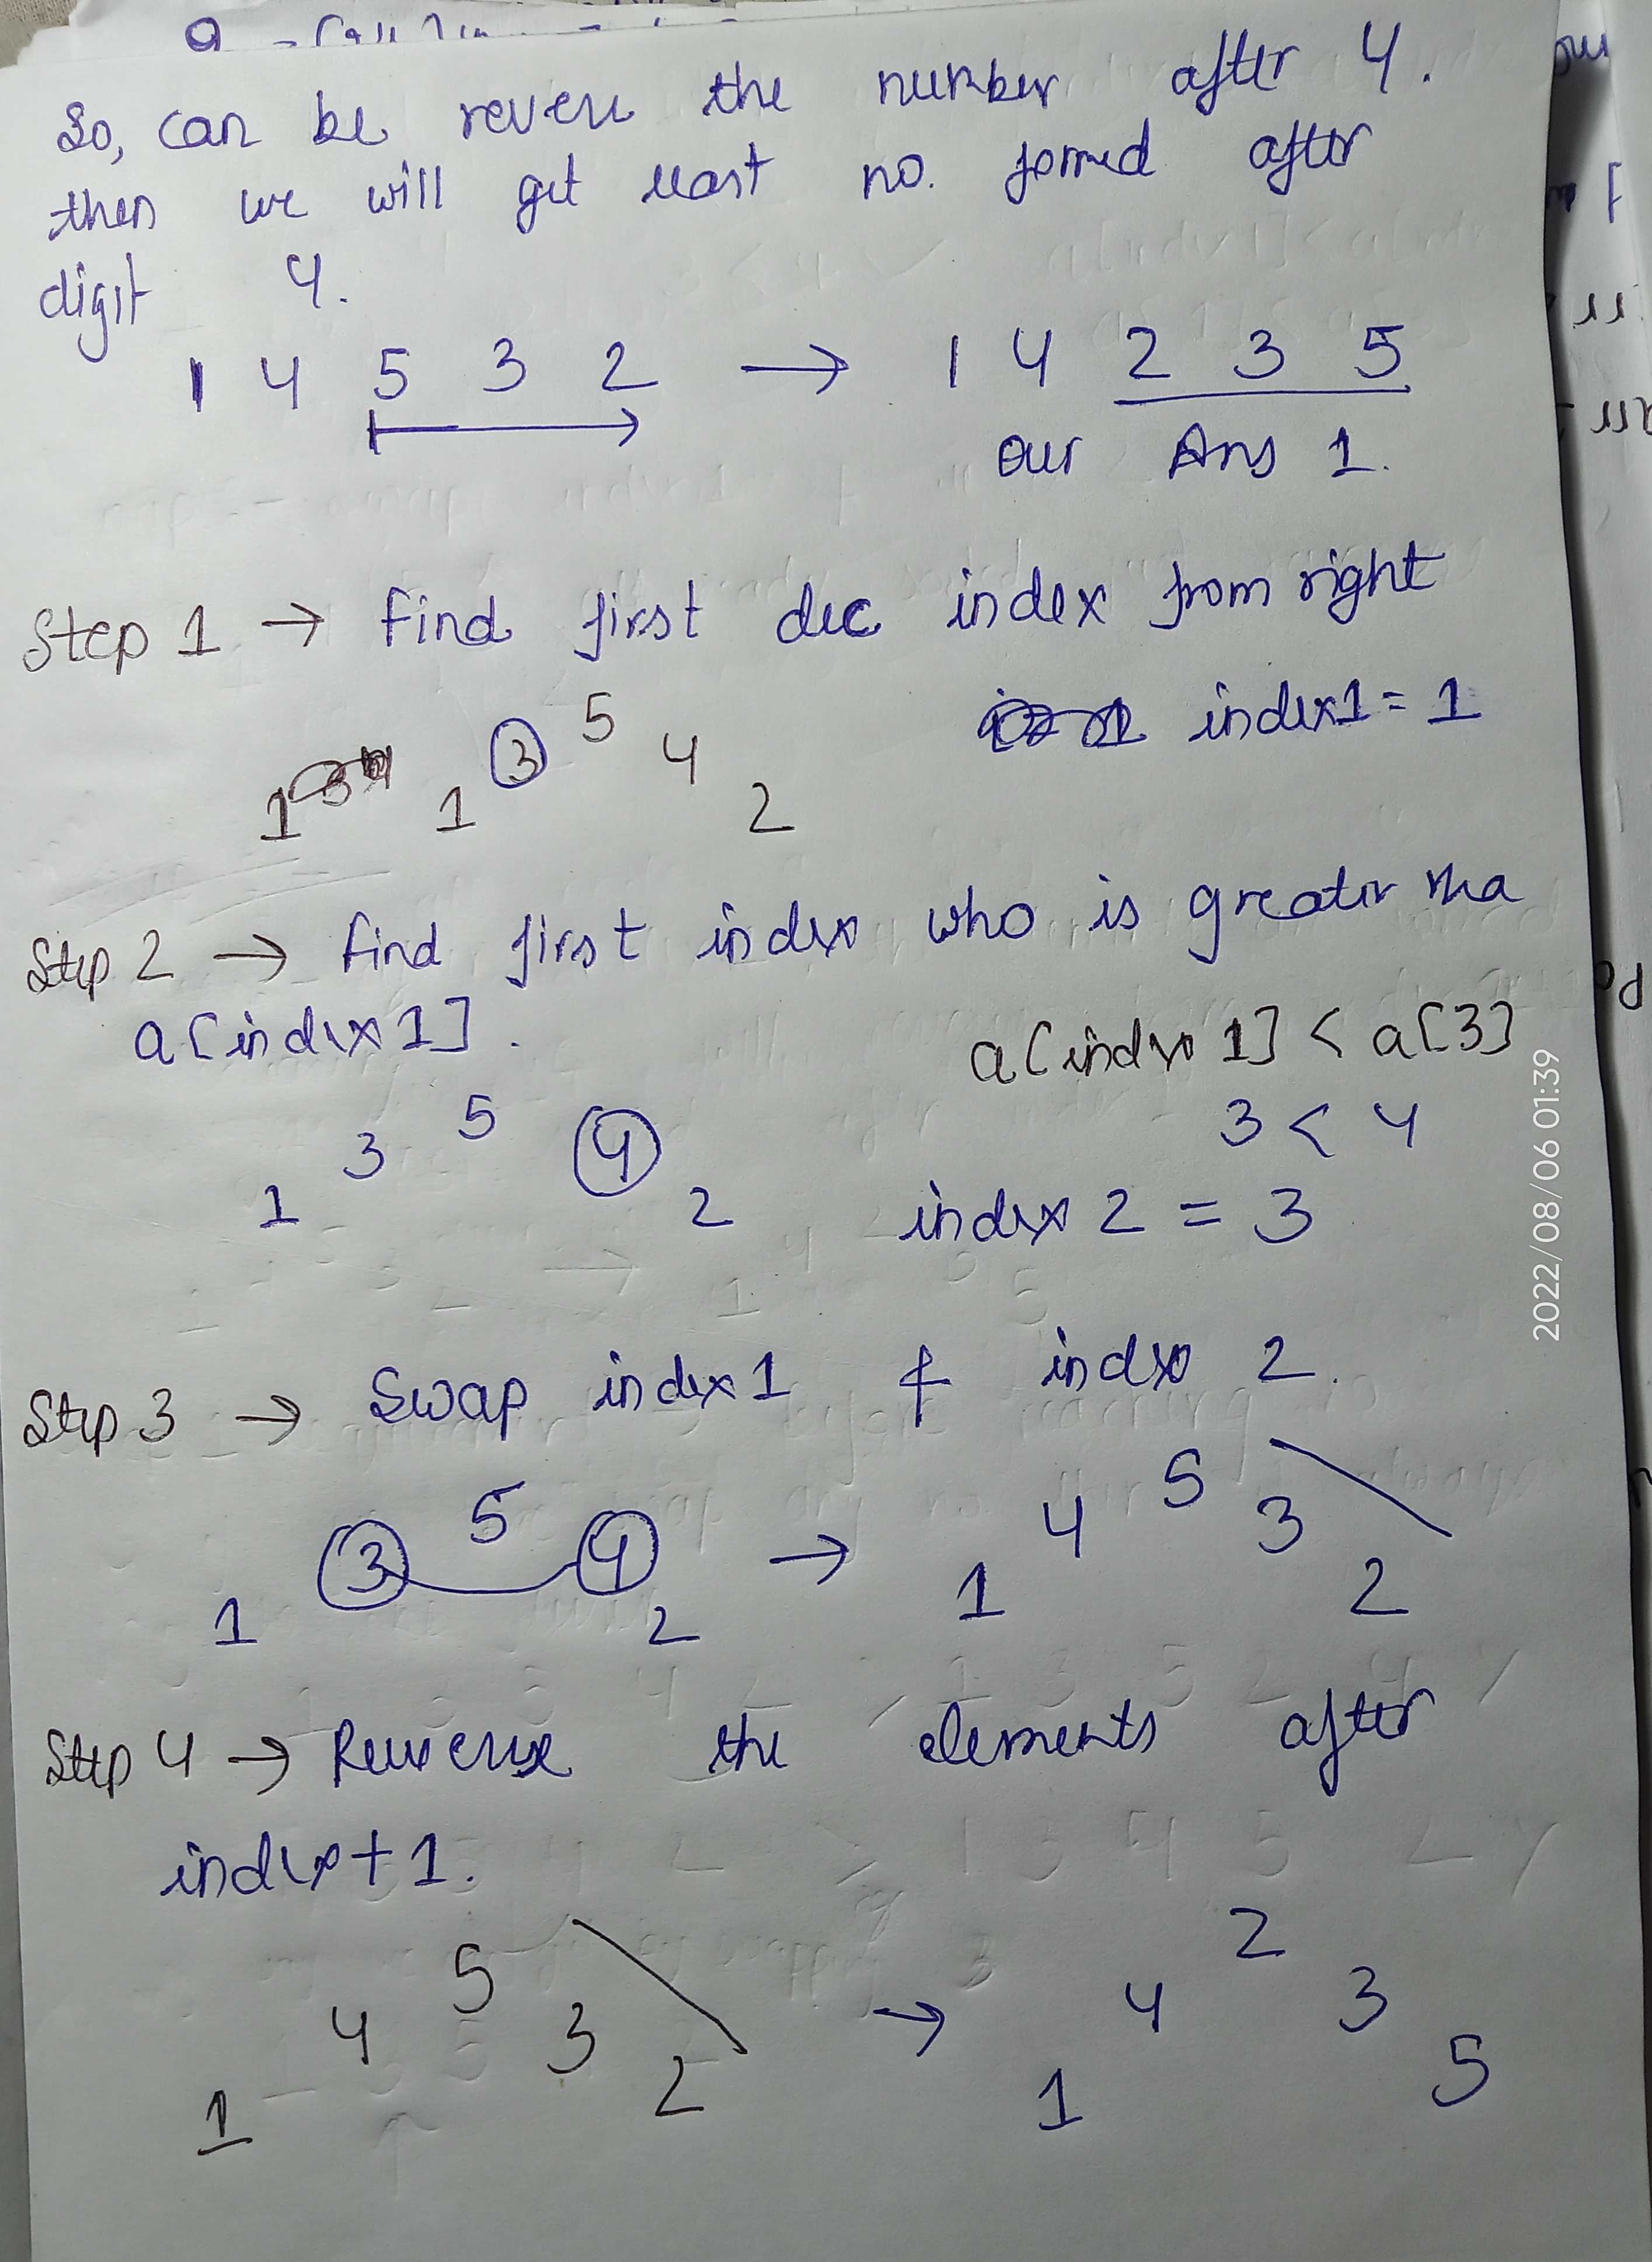 So, can be reverse the number after 4.
then we will get least no. formed after
digit 4.
1 4 5 3 2 → 1 4 2 3 5
our Ans 1.
Step 1 → Find first dec index from right
index1 = 1
1 3 5 4 2
Step 2 → find first index who is greater tha
a[index 1].
a[index 1] < a[3]
1 3 5 4 2
3 < 4
index 2 = 3
Step 3 → Swap index1 & index 2.
1 3 5 4 2 → 1 4 5 3 2
Step 4 → Reverse the elements after
index+1.
1 4 5 3 2 → 1 4 2 3 5
2022/08/06 01:39